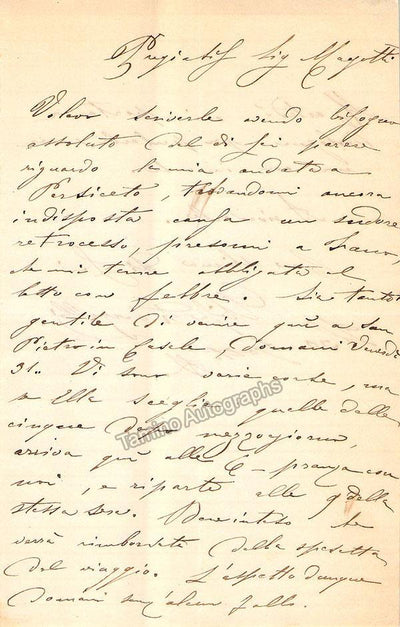 Pregiatis Sig Magotti
Volevo scriverle avendo bisogno
assoluto del di Lei parere
riguardo la mia andata a
Persiceto, trovandomi ancora
indisposta causa un sudore
retrocesso, presomi a
che mi tenne obbligata al
letto con febbre. Sia tanto
gentile di venire quì a San
Pietro in Casale, domani Venerdì
31. Vi sono varie corse, ma
se Ella sceglie quelle delle
cinque dopo mezzogiorno,
arriva quì alle 6 - pranza con
noi, e riparte alle 9 della
stessa sera. Bene inteso che
verrà rimborsato della spesetta
del viaggio. L'aspetto dunque
domani senz'alcun fallo.
Tamino Autographs